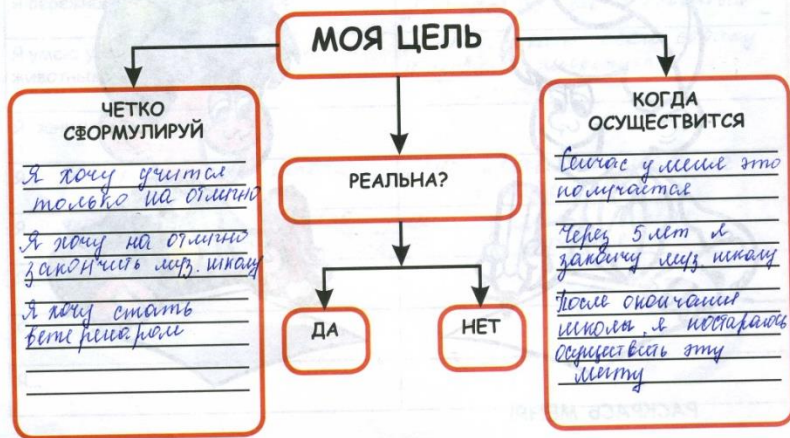 МОЯ ЦЕЛЬ
ЧЕТКО
СФОРМУЛИРУЙ
Я хочу учится
только на отлично
Я хочу на отлично
закончить муз. школу
Я хочу стать
ветеренаром
РЕАЛЬНА?
ДА
НЕТ
КОГДА
ОСУЩЕСТВИТСЯ
Сейчас у меня это
получается
Через 5 лет я
закончу муз. школу
После окончания
школы я постараюсь
осуществить эту
мечту